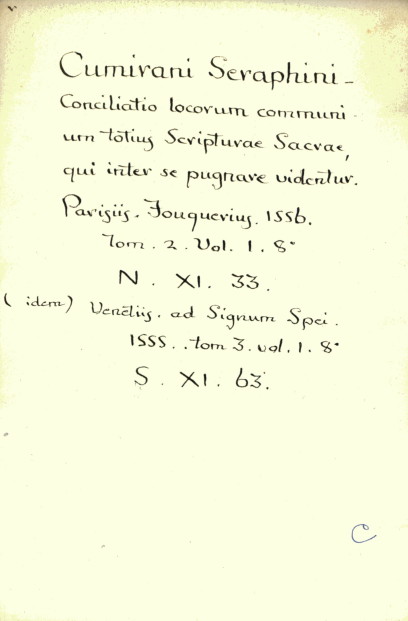 Cumirani Seraphini -
Conciliatio locorum communi -
um totius Scripturae Sacrae,
qui inter se pugnare videntur.
Parisiis. Fouquerius. 1556.
Tom. 2. Vol. 1. 8°
N. XI. 33.
(idem) Venetiis. ad Signum Spei.
1555. . tom 3. vol. 1. 8°
S. XI. 63.
C